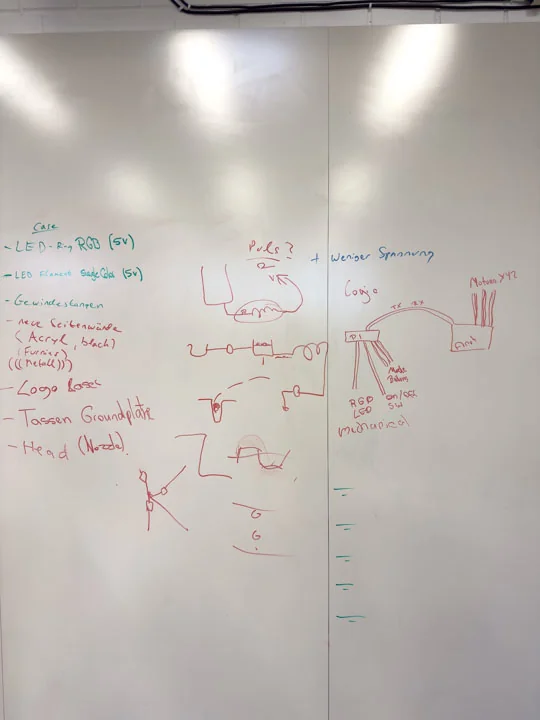 Case
- LED-Ring RGB (5V)
- LED Filament SingleColor (5V)
- Gewindestangen
- neue Seitenwände
(Acryl, black)
(Furnier)
(((Metall)))
- Logo Laset
- Tassen Groundplate
- Head (Nozzle)
Puls?
Ω
V
+ Weniger Spannung
G
G
Logo
TX RX
Motoren XYZ
RGB
LED
on/off
SW
mechanical